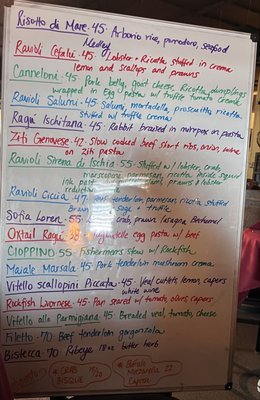 Risotto di Mare 45 Arborio rice, pomodoro, seafood
Medley
Ravioli Cefalu 45 Lobster + Ricotta stuffed in crema
lemon and scallops and prawns
Canneloni 45 Pork belly, goat cheese Ricotta
wrapped in Egg pasta w/ truffle tomato crema
Ravioli Salumi 45 Salumi, mortadella prosciutto ricotta
stuffed w/ truffle crema
Ragu Ischitana 45 Rabbit braised in mirepoix on pasta
Ziti Genovese 42 Slow cooked beef short ribs, onion,
on Ziti pasta
Ravioli Sirena di Ischia 55 Stuffed w/ lobster, crab,
mascarpone, parmesan, ricotta inside squid
ink prawns lobster
reduction
Ravioli Ciccia 47 parmesan, ricotta, stuffed
Sofia Loren 55 Crab, prawn lasagna, Bechamel
Oxtail Ragu egg pasta w/ beef
CIOPPINO 55 Fisherman's stew w/ Rockfish
Maiale Marsala 45 Pork tenderloin mushroom crema
Vitello Scallopini Piccata 45 Veal cutlets, lemon, capers
white wine
Rockfish Livornese 45 Pan seared w/ tomato, olives, capers
Vitello alla Parmigiana 45 Breaded veal, tomato, cheese
Filetto 70 Beef tenderloin gorgonzola
Bistecca 70 Ribeye 18oz butter herb
CRAB 15/20
BISQUE
Bufala
Mozzarella 22